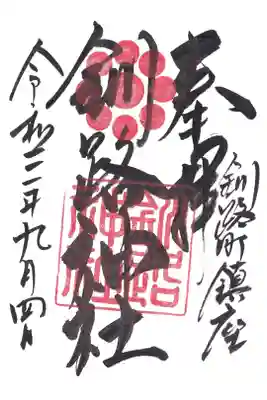 奉拝
釧路町鎮座
釧路神社
令和二年九月四日
釧路神社